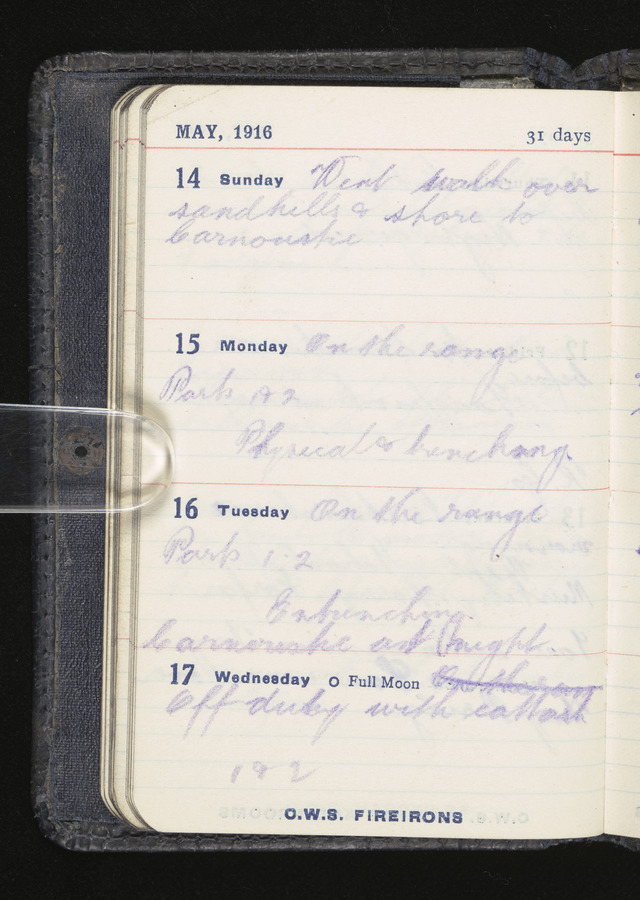 MAY, 1916 31 days
14 Sunday Went walk over
sandhills & shore to
Carnoustie
15 Monday On the range
Parts 1 & 2
Physical & trenching.
16 Tuesday On the range
Parts 1 · 2
Entrenching.
Carnoustie at night.
17 Wednesday O Full Moon On the ran
Off duty with
1 & 2
O.W.S. FIREIRONS